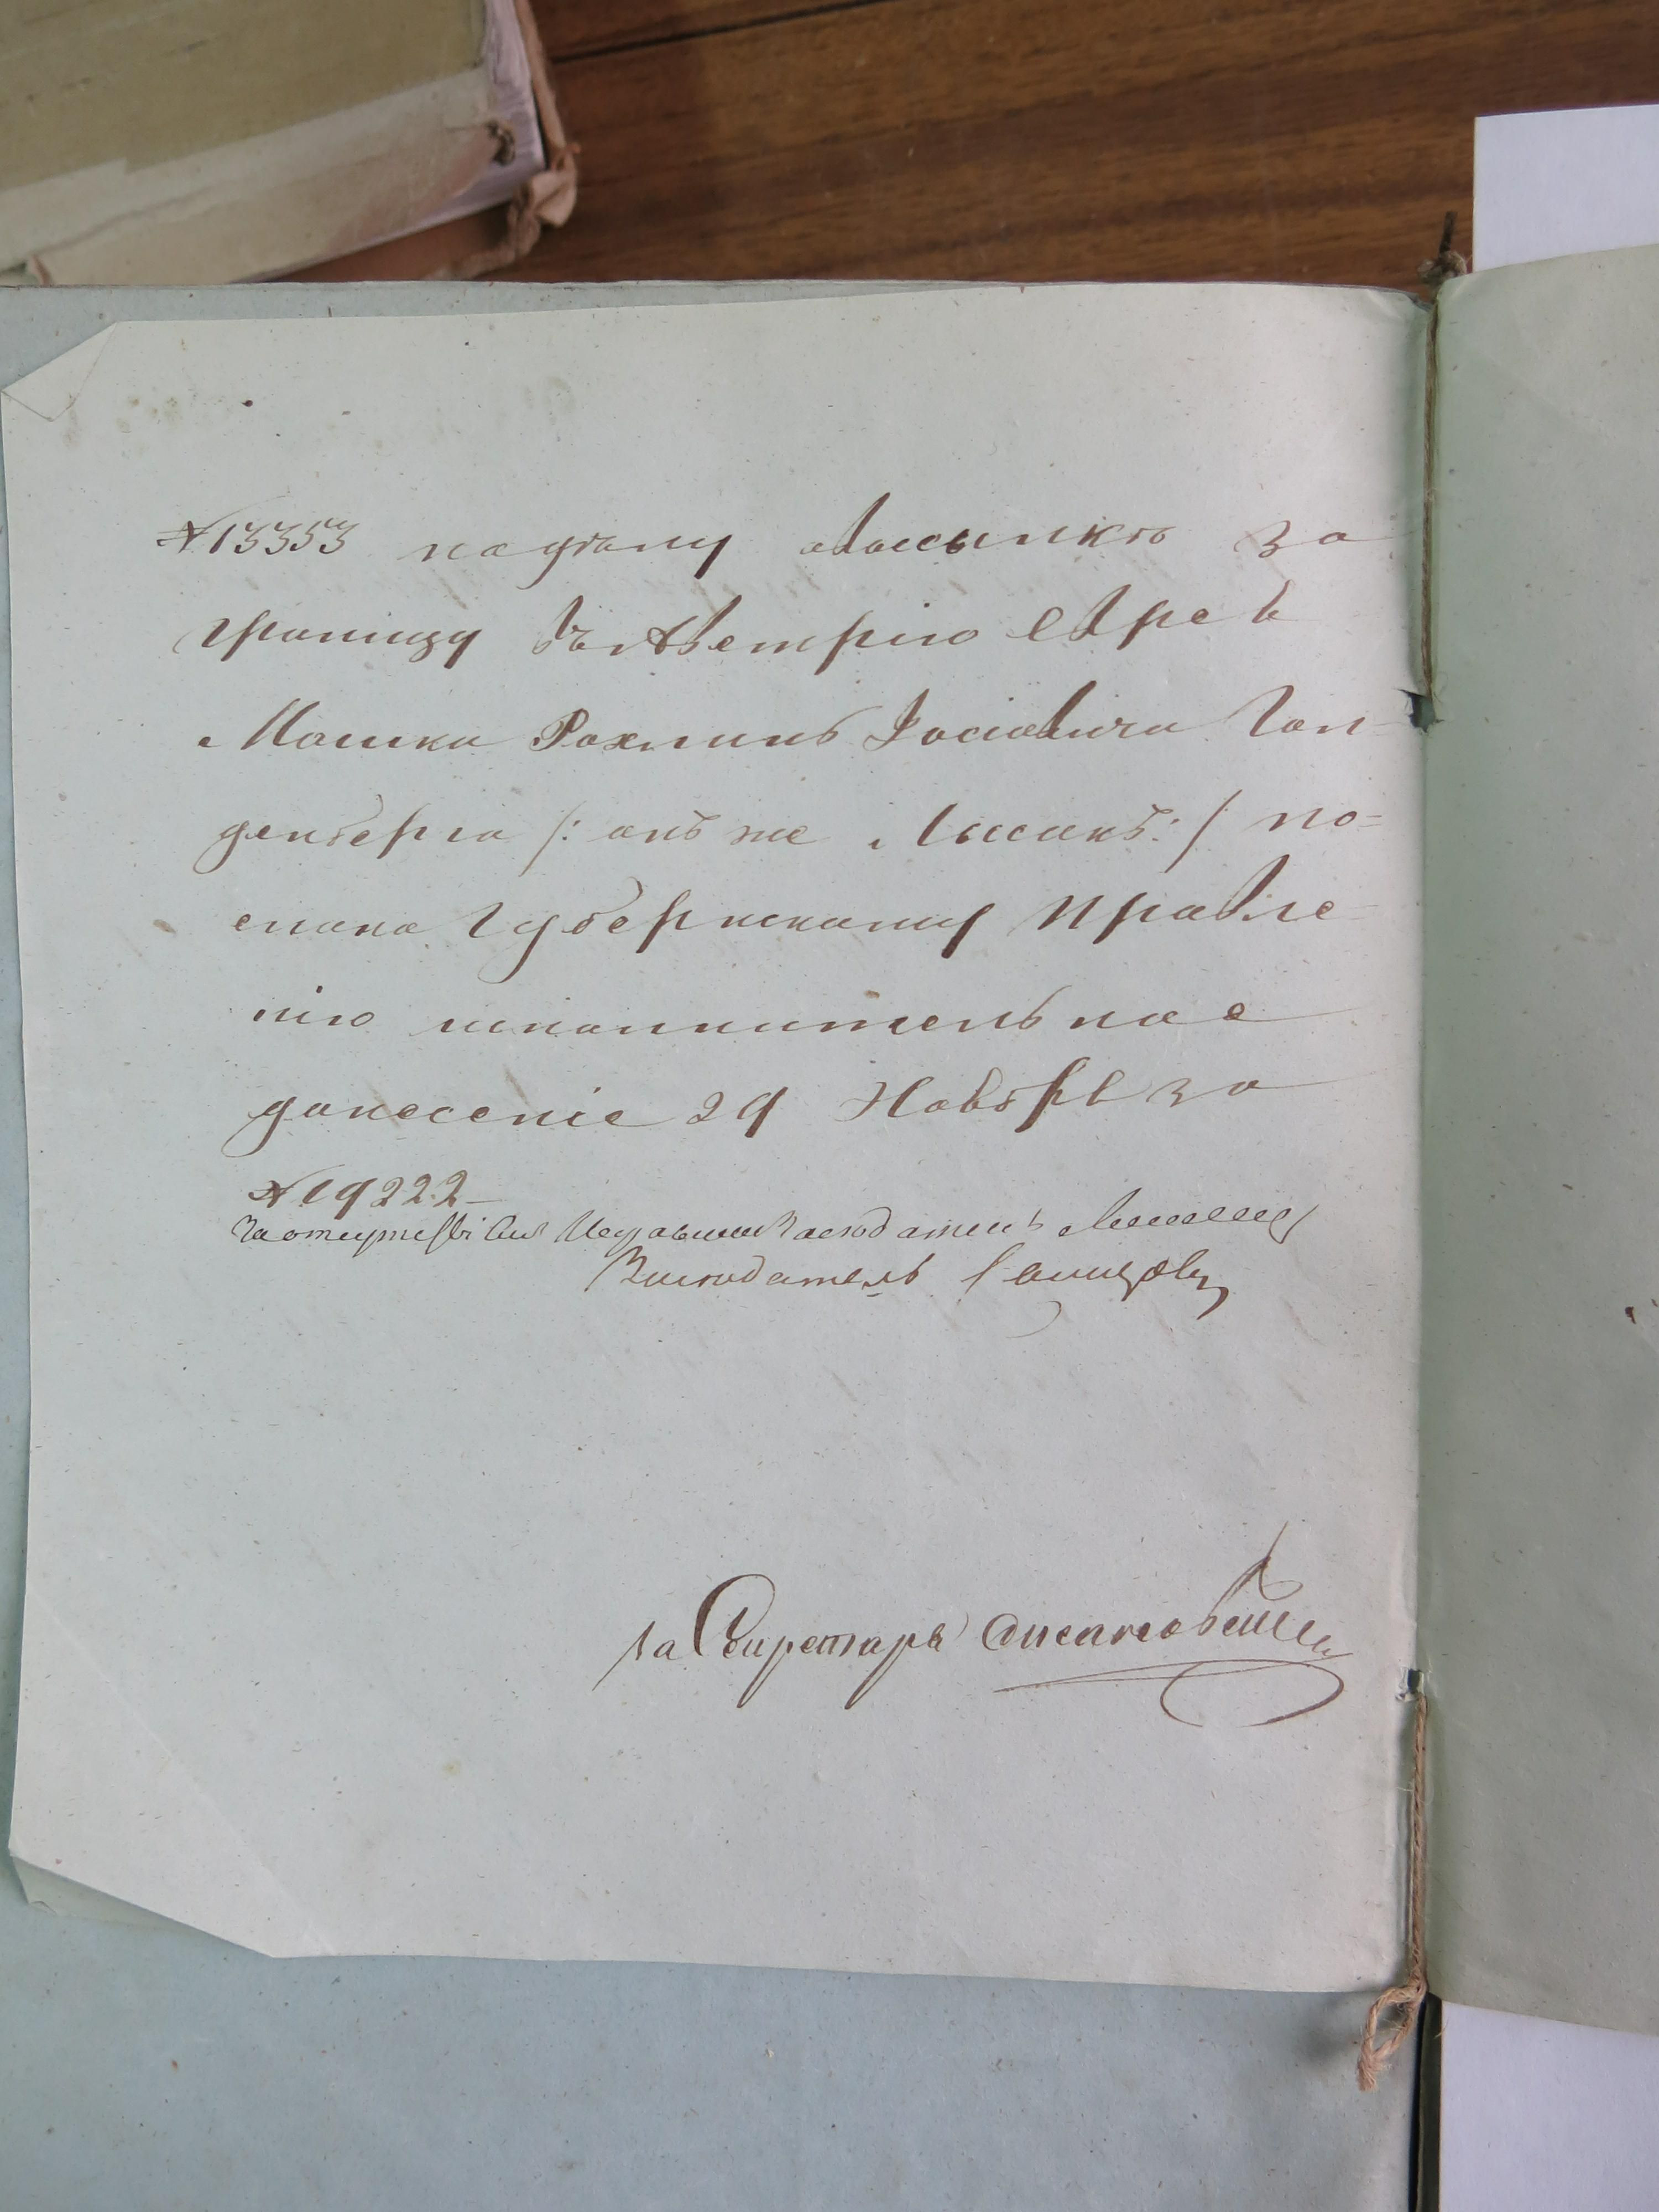 №13353 по дѣлу о высылкѣ за
границу въ Австрію еврея
Мошка Рахмиль Іосіовича Гол-
денберга /: онъ же Лысакъ :/ по-
слано Губернскому Правле-
нію исполнительное
донесеніе 29 Ноября за
№19222
За отсутствіемъ Исправника Засѣдатель
Засѣдатель
За Секретаря